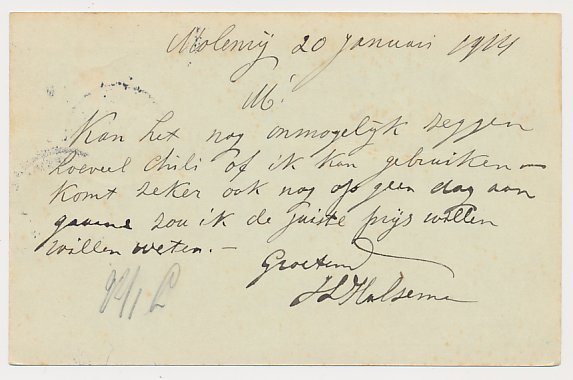 20 Januari 1914
M!
Kan het nog onmogelijk zeggen
hoeveel Chili of ik kan gebruiken —
komt zeker ook nog op geen dag aan
gaarne zou ik de juiste prijs willen
willen weten. —
Groetend
Halsema